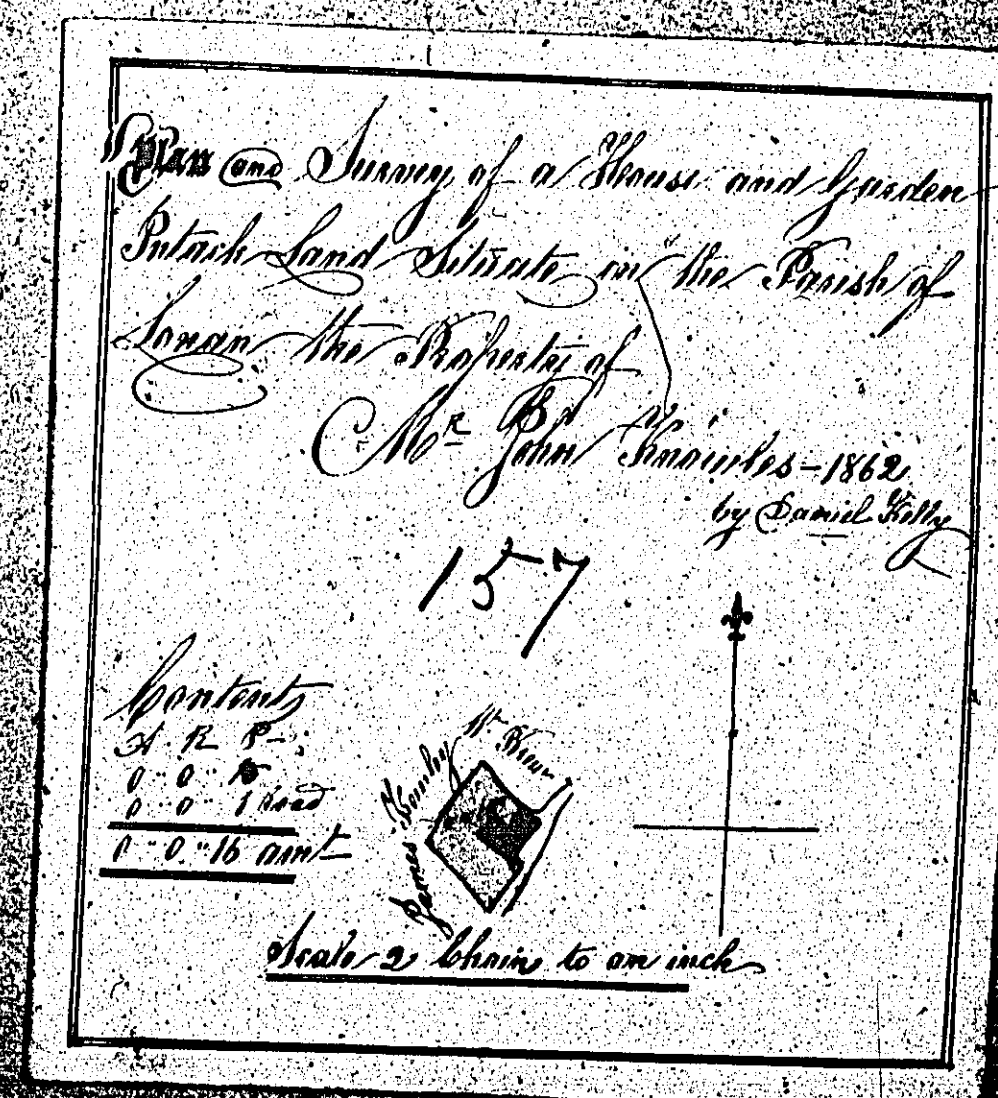 Plan and Survey of a House and Garden
Intack Land Situate in the Parish of
Lonan the Property of
Mr John Knowles - 1862
by Daniel Kelly
157
Contents
A R P
0 " 0 " 15
0 " 0 " 1 Road
0 " 0 " 16 amt
Wm
James
Scale 2 Chain to an inch